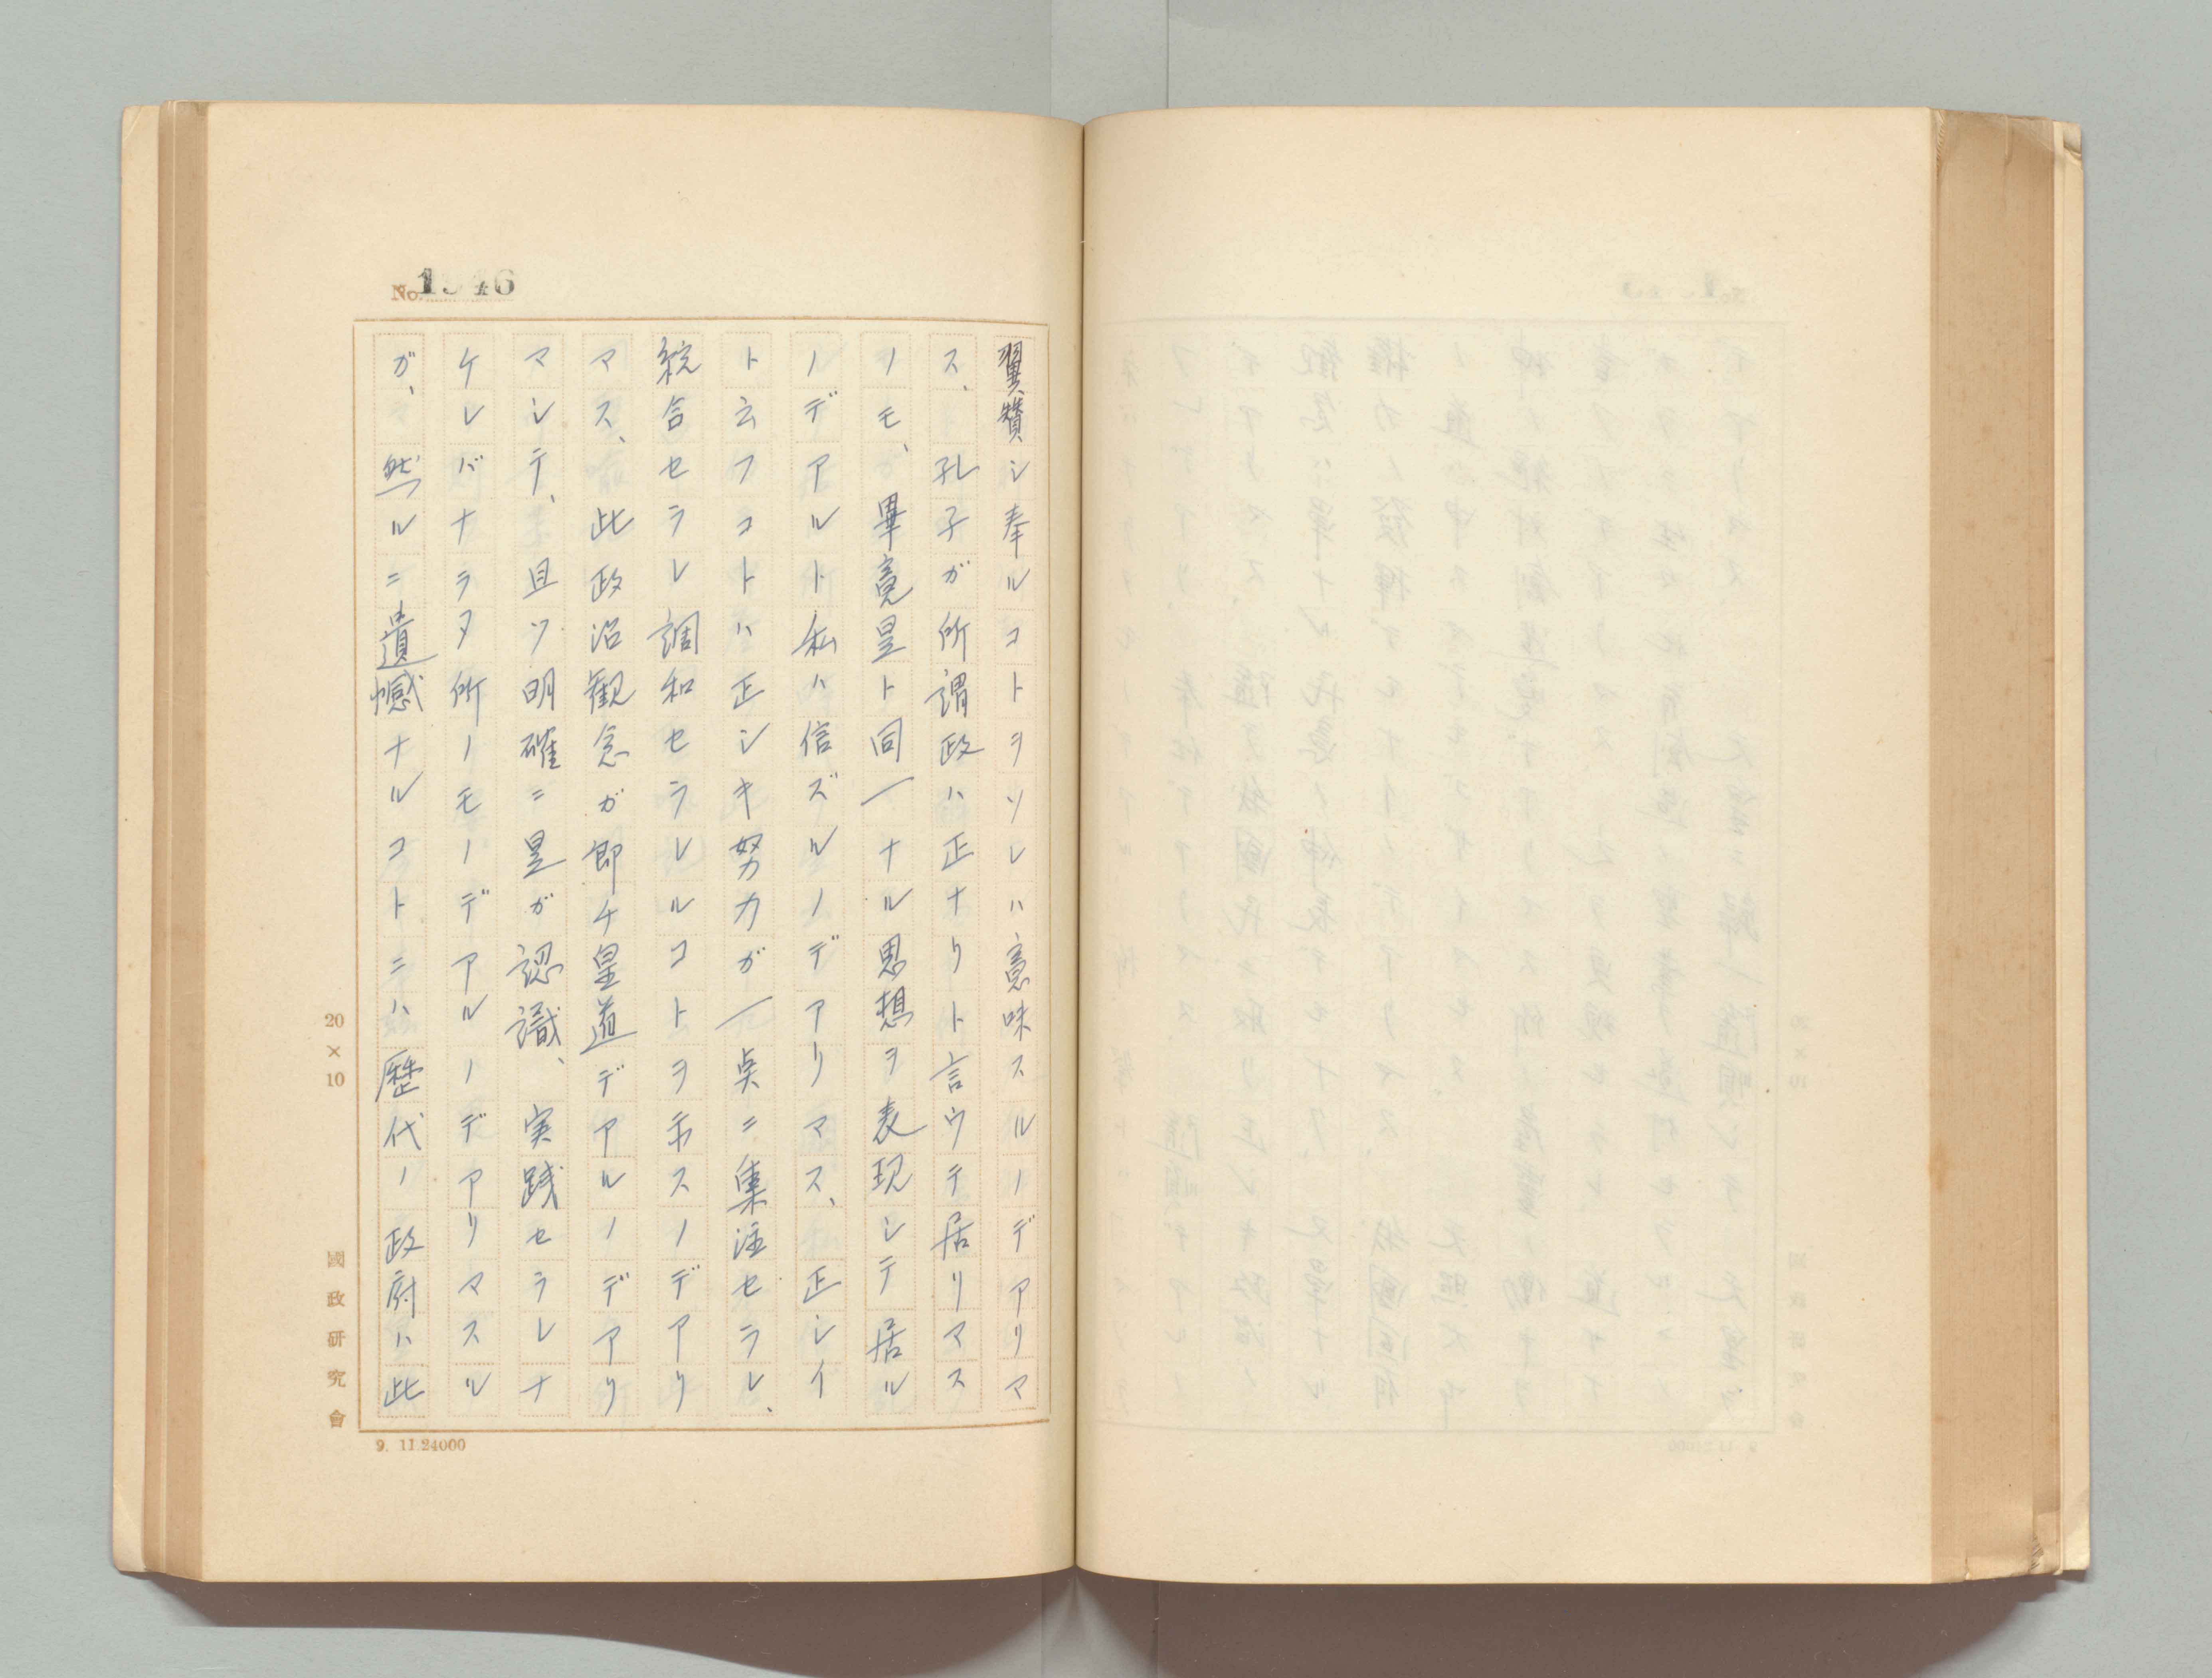 No. 1946
翼賛シ奉ルコトヲソレハ意味スルノデアリマ
ス、孔子ガ所謂政ハ正ナリト言ウテ居リマス
ノモ、畢竟是ト同一ナル思想ヲ表現シテ居ル
ノデアルト私ハ信ズルノデアリマス、正シイ
ト云フコトハ正シキ努力ガ一点ニ集注セラレ、
統合セラレ調和セラレルコトヲ示スノデアリ
マス、此政治観念ガ即チ皇道デアルノデアリ
マシテ、且ツ明確ニ是ガ認識、実践セラレナ
ケレバナラヌ所ノモノデアルノデアリマスル
ガ、然ルニ遺憾ナルコトニハ歴代ノ政府ハ此
20×10
國政研究會
9. 11 24000